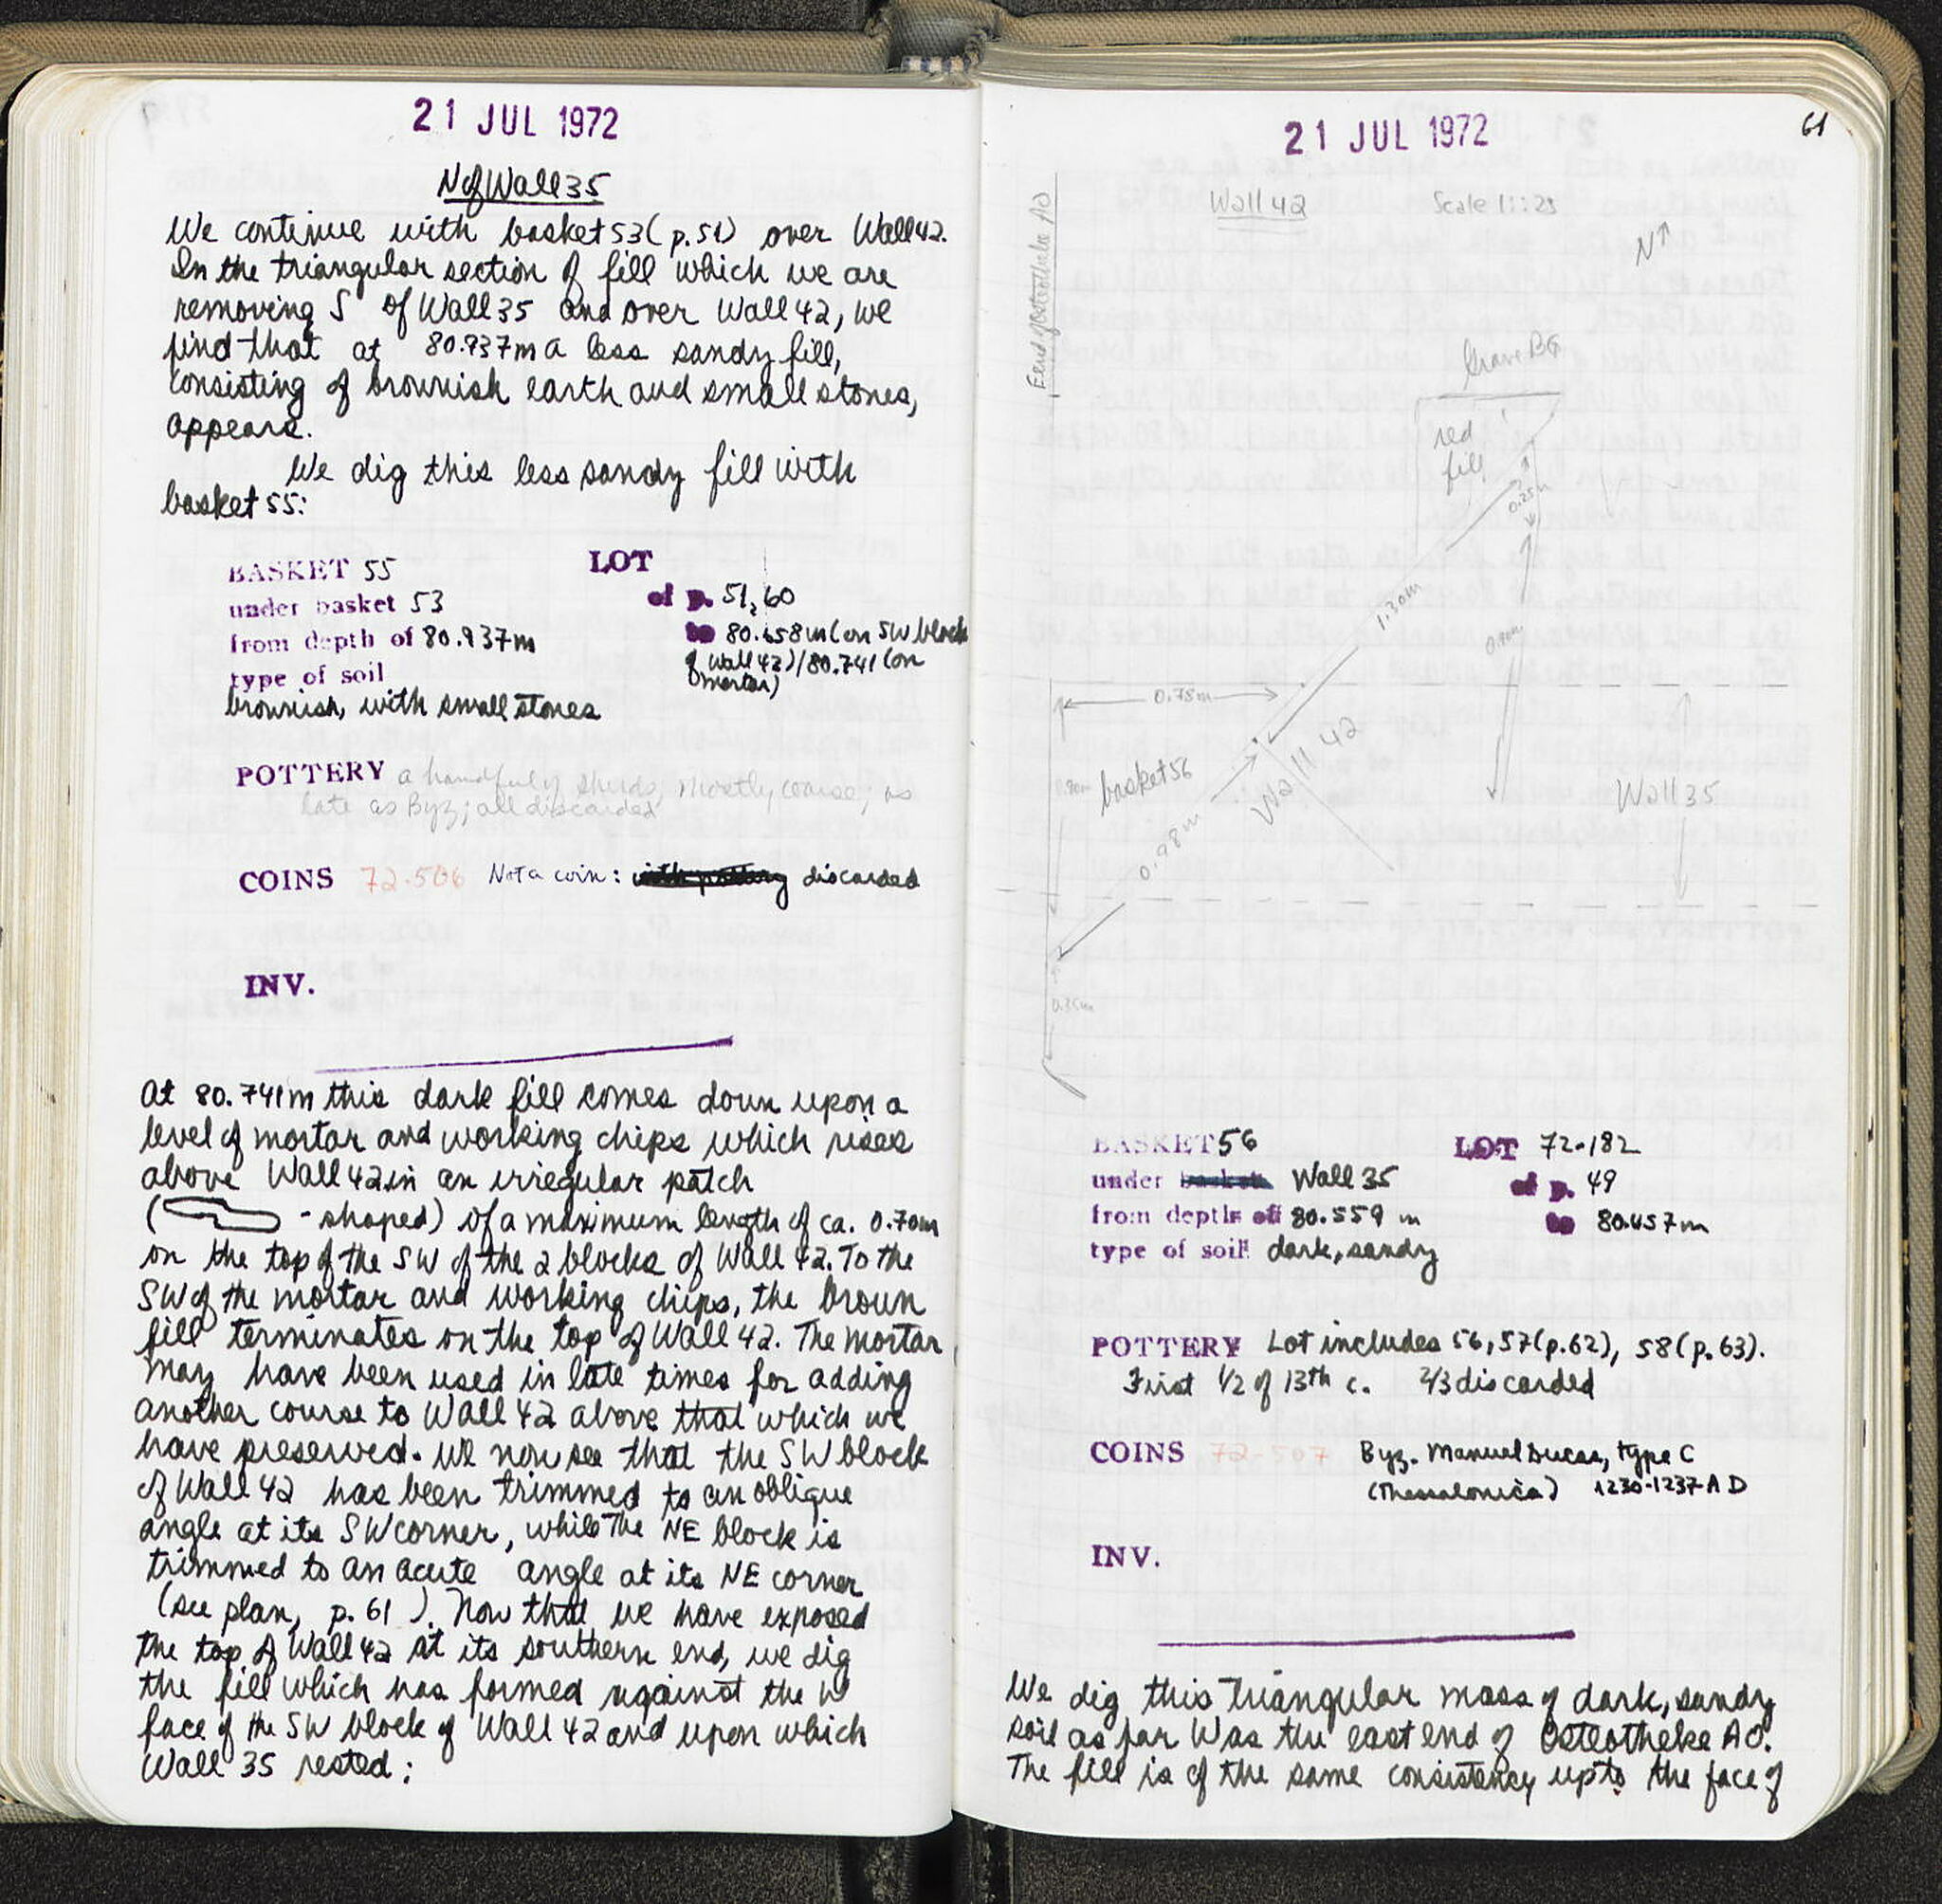 21 JUL 1972
N of Wall 35
We continue with basket 53 (p.51) over Wall 42.
In the triangular section of fill which we are
removing S of Wall 35 and over Wall 42, we
find that at 80.937m a less sandy fill,
consisting of brownish earth and small stones,
appears.
We dig this less sandy fill with
basket 55:
BASKET 55
LOT
under basket 53
of p. 51, 60
from depth of 80.937m
to 80.658m (on SW block
of Wall 42)/80.741 (on
mortar)
type of soil
brownish, with small stones
POTTERY a handful of sherds, mostly coarse; as
late as Byz; all discarded
COINS 72-506 Not a coin: with pottery discarded
INV.
At 80.741m this dark fill comes down upon a
level of mortar and working chips which rises
above Wall 42 in an irregular patch
( -shaped) of a maximum length of ca. 0.70m
on the top of the SW of the 2 blocks of Wall 42. To the
SW of the mortar and working chips, the brown
fill terminates on the top of Wall 42. The mortar
may have been used in late times for adding
another course to Wall 42 above that which we
have preserved. We now see that the SW block
of Wall 42 has been trimmed to an oblique
angle at its SW corner, while the NE block is
trimmed to an acute angle at its NE corner
(see plan, p. 61). Now that we have exposed
the top of Wall 42 at its southern end, we dig
the fill which has formed against the W
face of the SW block of Wall 42 and upon which
Wall 35 rested:
21 JUL 1972
61
Wall 42
Scale 1:25
N
E end of Osteotheke AO
Grave BG
red
fill
0.25m
1.30m
0.90m
0.78m
Wall 42
basket 56
0.98m
Wall 35
0.35m
BASKET 56
LOT 72-182
under basket Wall 35
of p. 49
from depth of 80.559 m
to 80.457m
type of soil dark, sandy
POTTERY Lot includes 56, 57 (p.62), 58 (p.63).
First 1/2 of 13th c. 2/3 discarded
COINS 72-507 Byz. Manuel Ducas, type C
(Thessalonica) 1230-1237 AD
INV.
We dig this triangular mass of dark, sandy
soil as far W as the east end of Osteotheke AO.
The fill is of the same consistency up to the face of